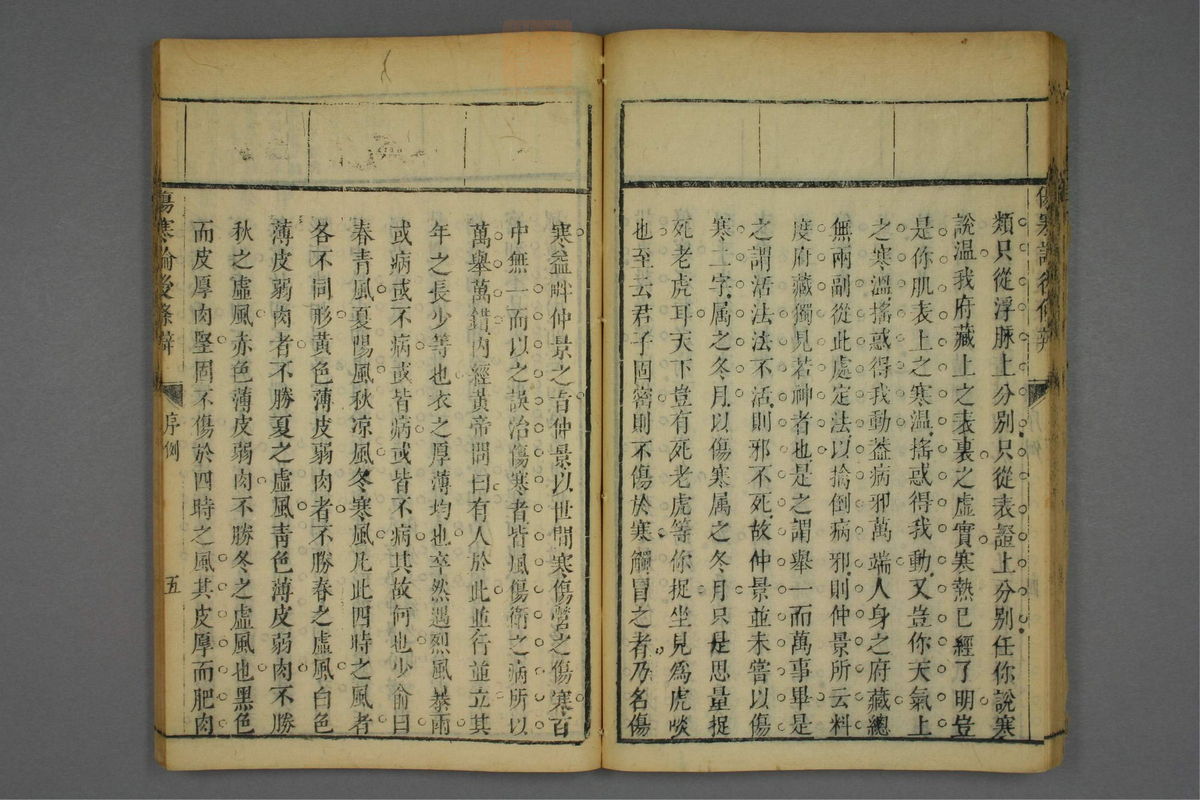 類只從浮脉上分別只從表證上分別任你說寒
說温我府藏上之表裏之虛實寒熱已經了明豈
是你肌表上之寒温搖惑得我動又豈你天氣上
之寒溫搖惑得我動葢病邪萬端人身之府藏總
無兩副從此處定法以擒倒病邪則仲景所云料
度府藏獨見若神者也是之謂舉一而萬事畢是
之謂活法法不活則邪不死故仲景並未嘗以傷
寒二字属之冬月以傷寒属之冬月只是思量捉
死老虎耳天下豈有死老虎等你捉坐見爲虎啖
也至云君子固密則不傷於寒觸冒之者乃名傷
寒益畔仲景之旨仲景以世間寒傷營之傷寒百
中無一而以之誤治傷寒者皆風傷衛之病所以
萬舉萬錯內經黃帝問曰有人於此並行並立其
年之長少等也衣之厚薄均也卒然遇烈風暴雨
或病或不病或皆病或皆不病其故何也少俞曰
春青風夏陽風秋凉風冬寒風凡此四時之風者
各不同形黃色薄皮弱肉者不勝春之虛風白色
薄皮弱肉者不勝夏之虛風靑色薄皮弱肉不勝
秋之虛風赤色薄皮弱肉不勝冬之虛風也黑色
而皮厚肉堅固不傷於四時之風其皮厚而肥肉
傷寒論後條辯
序例
五